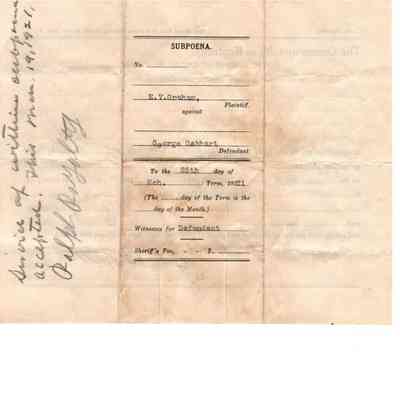 SUBPOENA.
No
E.Y.Graham,
Plaintiff.
against
George Gabhart
Defendant
To the 25th day of
Term,
(The day of the Term is the
day of the Month.)
Witnesses for Defendant
Sheriff's Fee, - - $
Service of within subpoena
accepted. This Mch 19, 1921.
Ralph